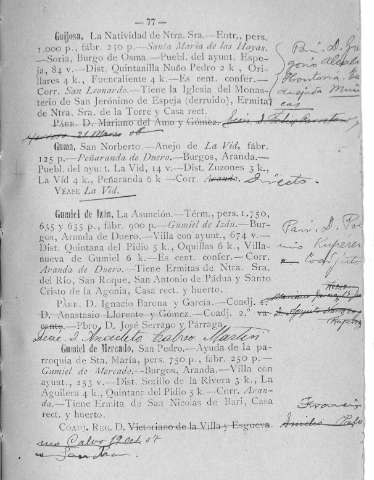 — 77 —
Guijosa, La Natividad de Ntra. Sra. — Entr., pers.
1.000 p., fábr. 250 p.—Santa María de las Hoyas.
—Soria, Burgo de Osma.—Puebl. del ayunt. Espeja, 84 v.—Dist. Quintanilla Nuño Pedro 2 k., Orillares 4 k., Fuencaliente 4 k.—Es cent. confer.—
Corr. San Leonardo.—Tiene la Iglesia del Monasterio de San Jerónimo de Espeja (derruído), Ermitas
de Ntra. Sra. de la Torre y Casa rect.
Párr. D. Mariano del Amo y Gómez.
Guma, San Norberto — Anejo de La Vid, fábr.
125 p.—Peñaranda de Duero.—Burgos, Aranda.—
Puebl. del ayunt. La Vid, 14 v.—Dist. Zuzones 3 k.,
La Vid 4 k., Peñaranda 6 k.—Corr. Aranda. Directo.
Véase La Vid.
Gumiel de Izán, La Asunción.—Térm., pers. 1.750,
655 y 635 p., fábr. 900 p.—Gumiel de Izán.—Burgos, Aranda de Duero.—Villa con ayunt., 674 v.—
Dist. Quintana del Pidio 5 k., Oquillas 6 k., Villanueva de Gumiel 6 k.—Es cent. confer.— Corr.
Aranda de Duero.—Tiene Ermitas de Ntra. Sra.
del Río, San Roque, San Antonio de Pádua y Santo
Cristo de la Agonía, Casa rect. y huerto.
Párr. D. Ignacio Barona y García.—Coadj.
D. Anastasio Llorente y Gómez.—Coadj. 2.º va-
cante.—Pbro. D. José Serrano y Párraga.
D. Anacleto Calvo Martín
Gumiel de Mercado, San Pedro.—Ayuda de la
parroquia de Sta. María, pers. 750 p., fábr. 250 p.—
Gumiel de Mercado.—Burgos, Aranda.—Villa con
ayunt., 253 v.—Dist. Sotillo de la Rivera 5 k., La
Aguilera 4 k., Quintana del Pidio 5 k.—Corr. Aranda.—Tiene Ermita de San Nicolás de Bari, Casa
rect. y huerto.
Coadj. Reg. D. Victoriano de la Villa y Esgueva